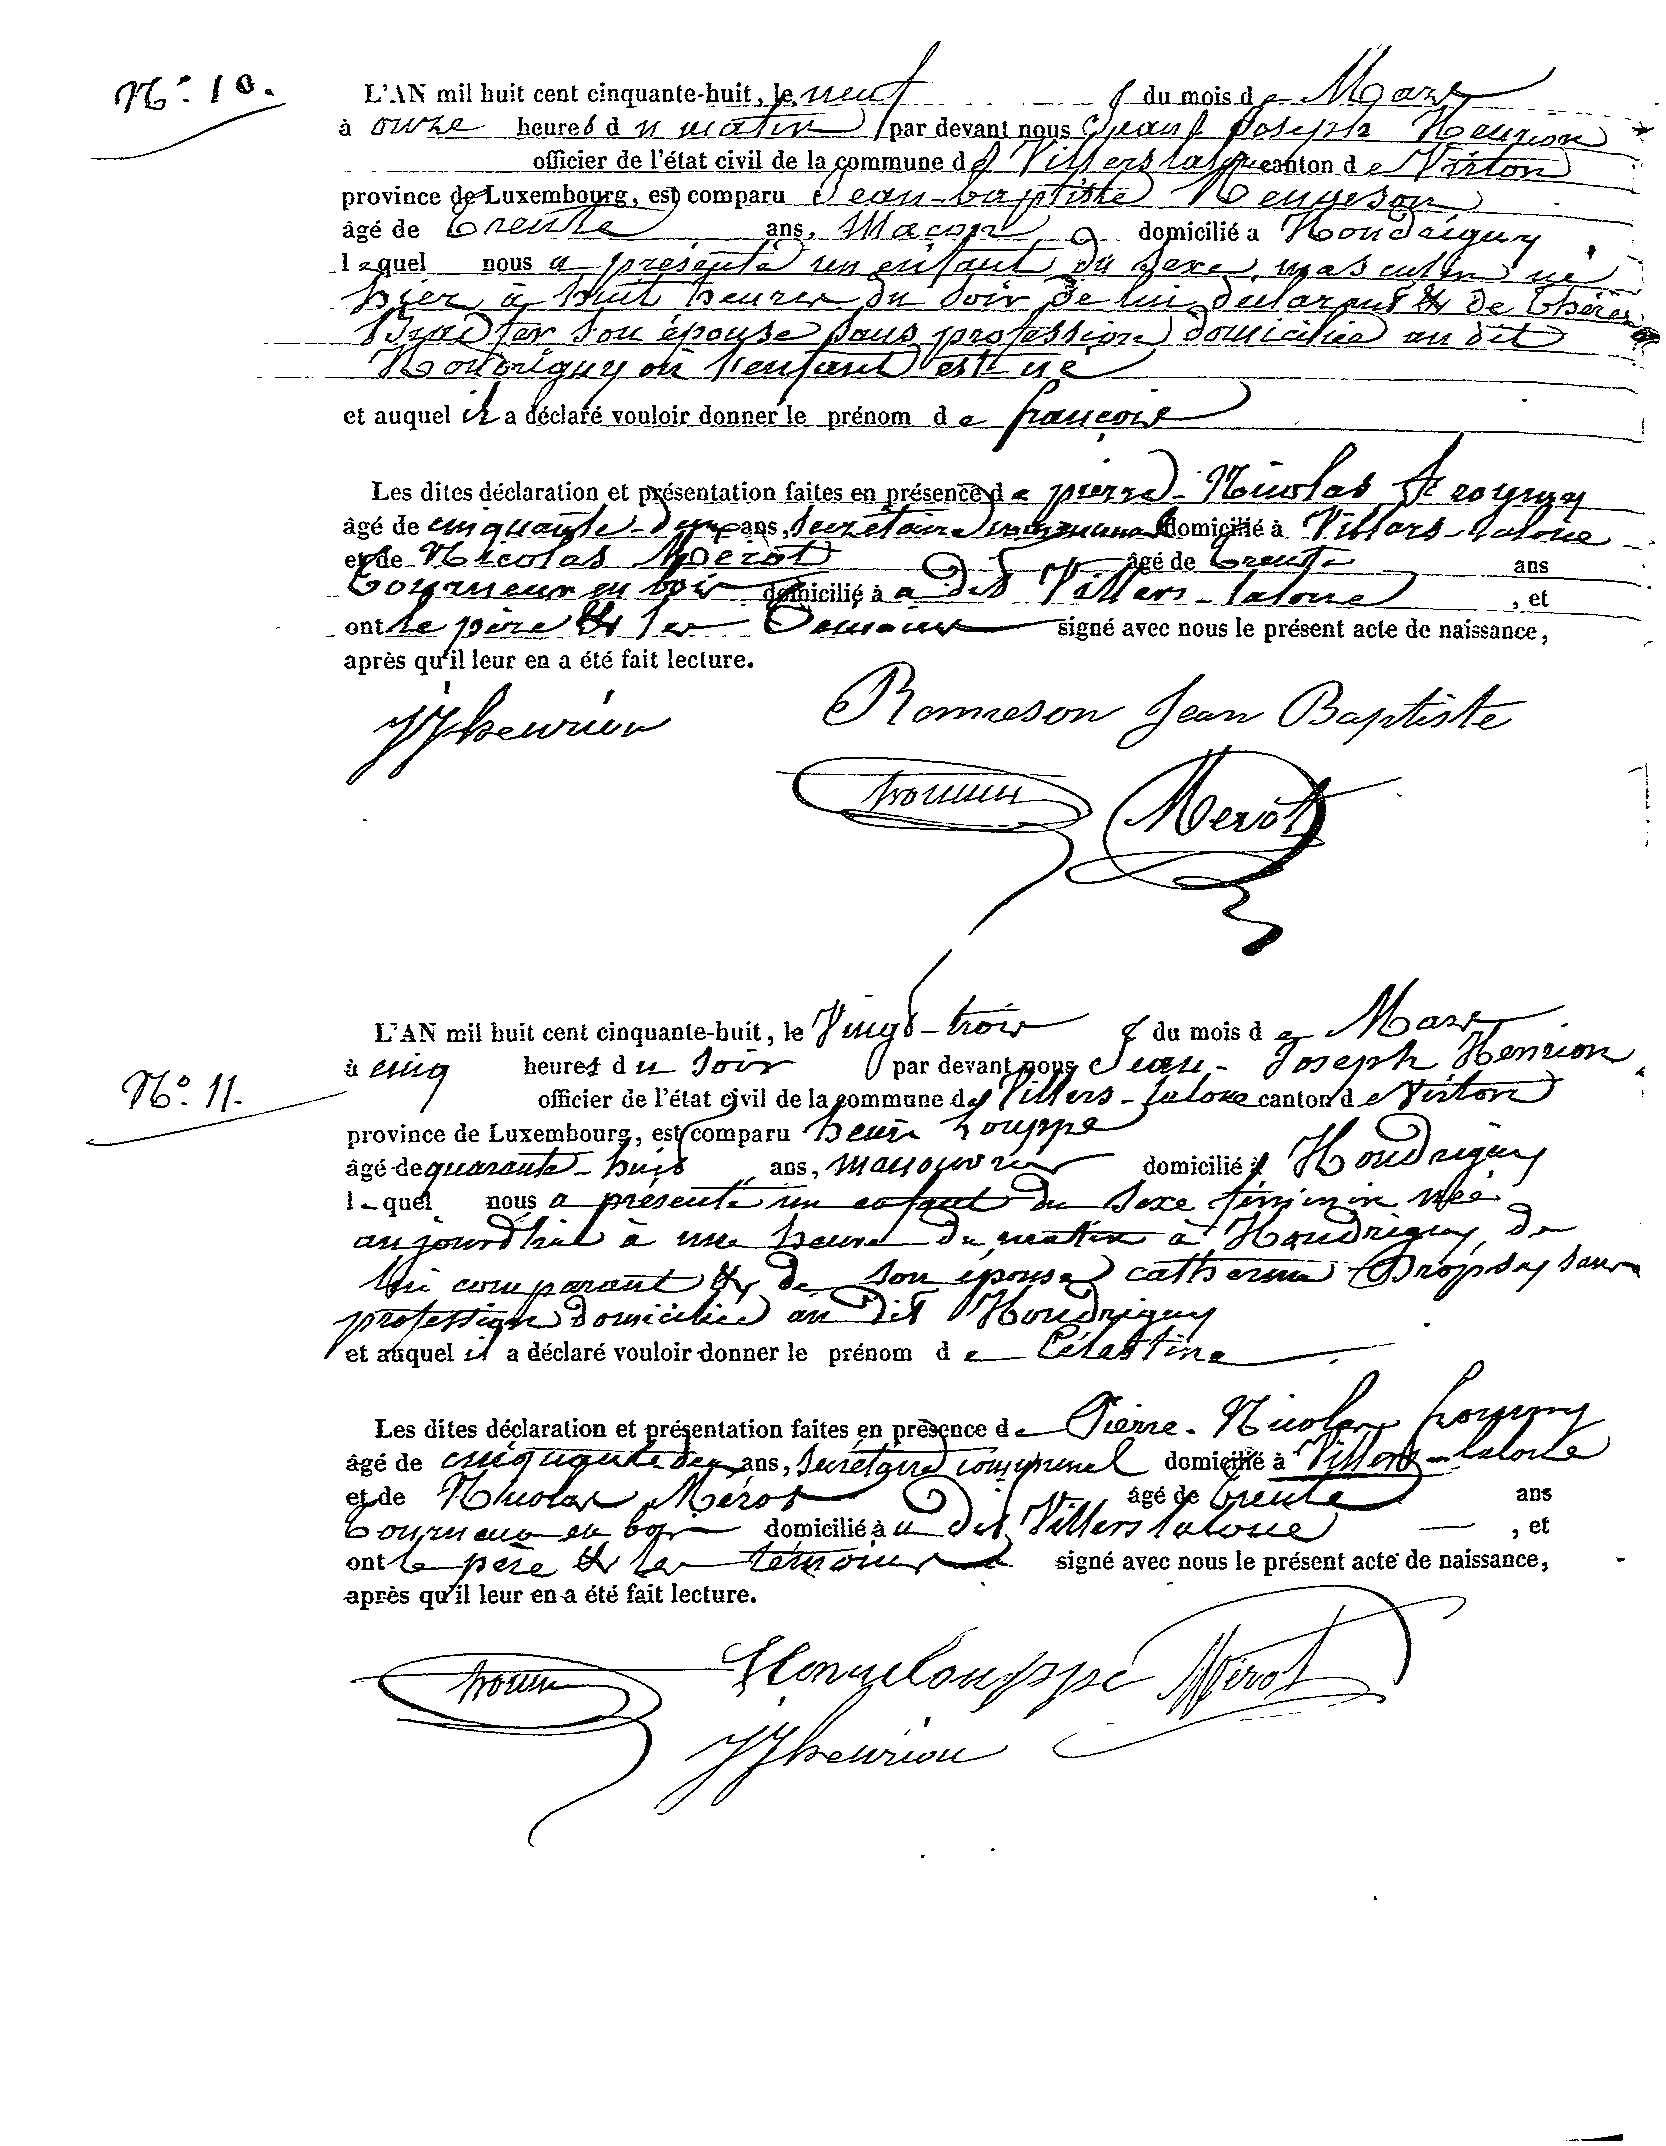 N°. 10.
L'AN mil huit cent cinquante-huit, le neuf du mois de Mars
à onze heures du matin par devant nous Jean Joseph Henrion
officier de l'état civil de la commune de Villers laloue canton de Virton
province de Luxembourg, est comparu Jean-baptiste
âgé de trente ans, Maçon domicilié a Houdrigny
lequel nous a présenté un enfant du sexe masculin né
hier à huit heures du soir de lui déclarant & de
son épouse sans profession domiciliée au dit
Houdrigny où l'enfant est né
et auquel il a déclaré vouloir donner le prénom de françois
Les dites déclaration et présentation faites en présence de pierre-Nicolas
âgé de cinquante-deux ans, secrétaire communal domicilié à Villers-laloue
et de Nicolas Mérot âgé de trente ans
tourneur en bois domicilié à u dit Villers-laloue , et
ont le père & les témoins signé avec nous le présent acte de naissance,
après qu'il leur en a été fait lecture.
JJhenrion Romneson Jean Baptiste
Merot
L'AN mil huit cent cinquante-huit, le Vingt-trois du mois de Mars
à cinq heures du soir par devant nous Jean-Joseph Henrion
N°. 11.
officier de l'état civil de la commune de Villers-laloue canton de Virton
province de Luxembourg, est comparu henri Louppe
âgé de quarante-huit ans, manouvrier domicilié à Houdrigny
lequel nous a présenté un enfant du sexe féminin née
aujourd'hui à une heure du matin à Houdrigny, de
lui comparant & de son épouse catherine Dropsy sans
profession domiciliée au dit Houdrigny
et auquel il a déclaré vouloir donner le prénom de Célestine
Les dites déclaration et présentation faites en présence de Pierre-Nicolas
âgé de cinquante deux ans, secrétaire communal domicilié à Villers-laloue
et de Nicolas Mérot âgé de trente ans
tourneur en bois domicilié à u dit Villers laloue , et
ont le père & les témoins signé avec nous le présent acte de naissance,
après qu'il leur en a été fait lecture.
Henri Louppe Mérot
JJhenrion